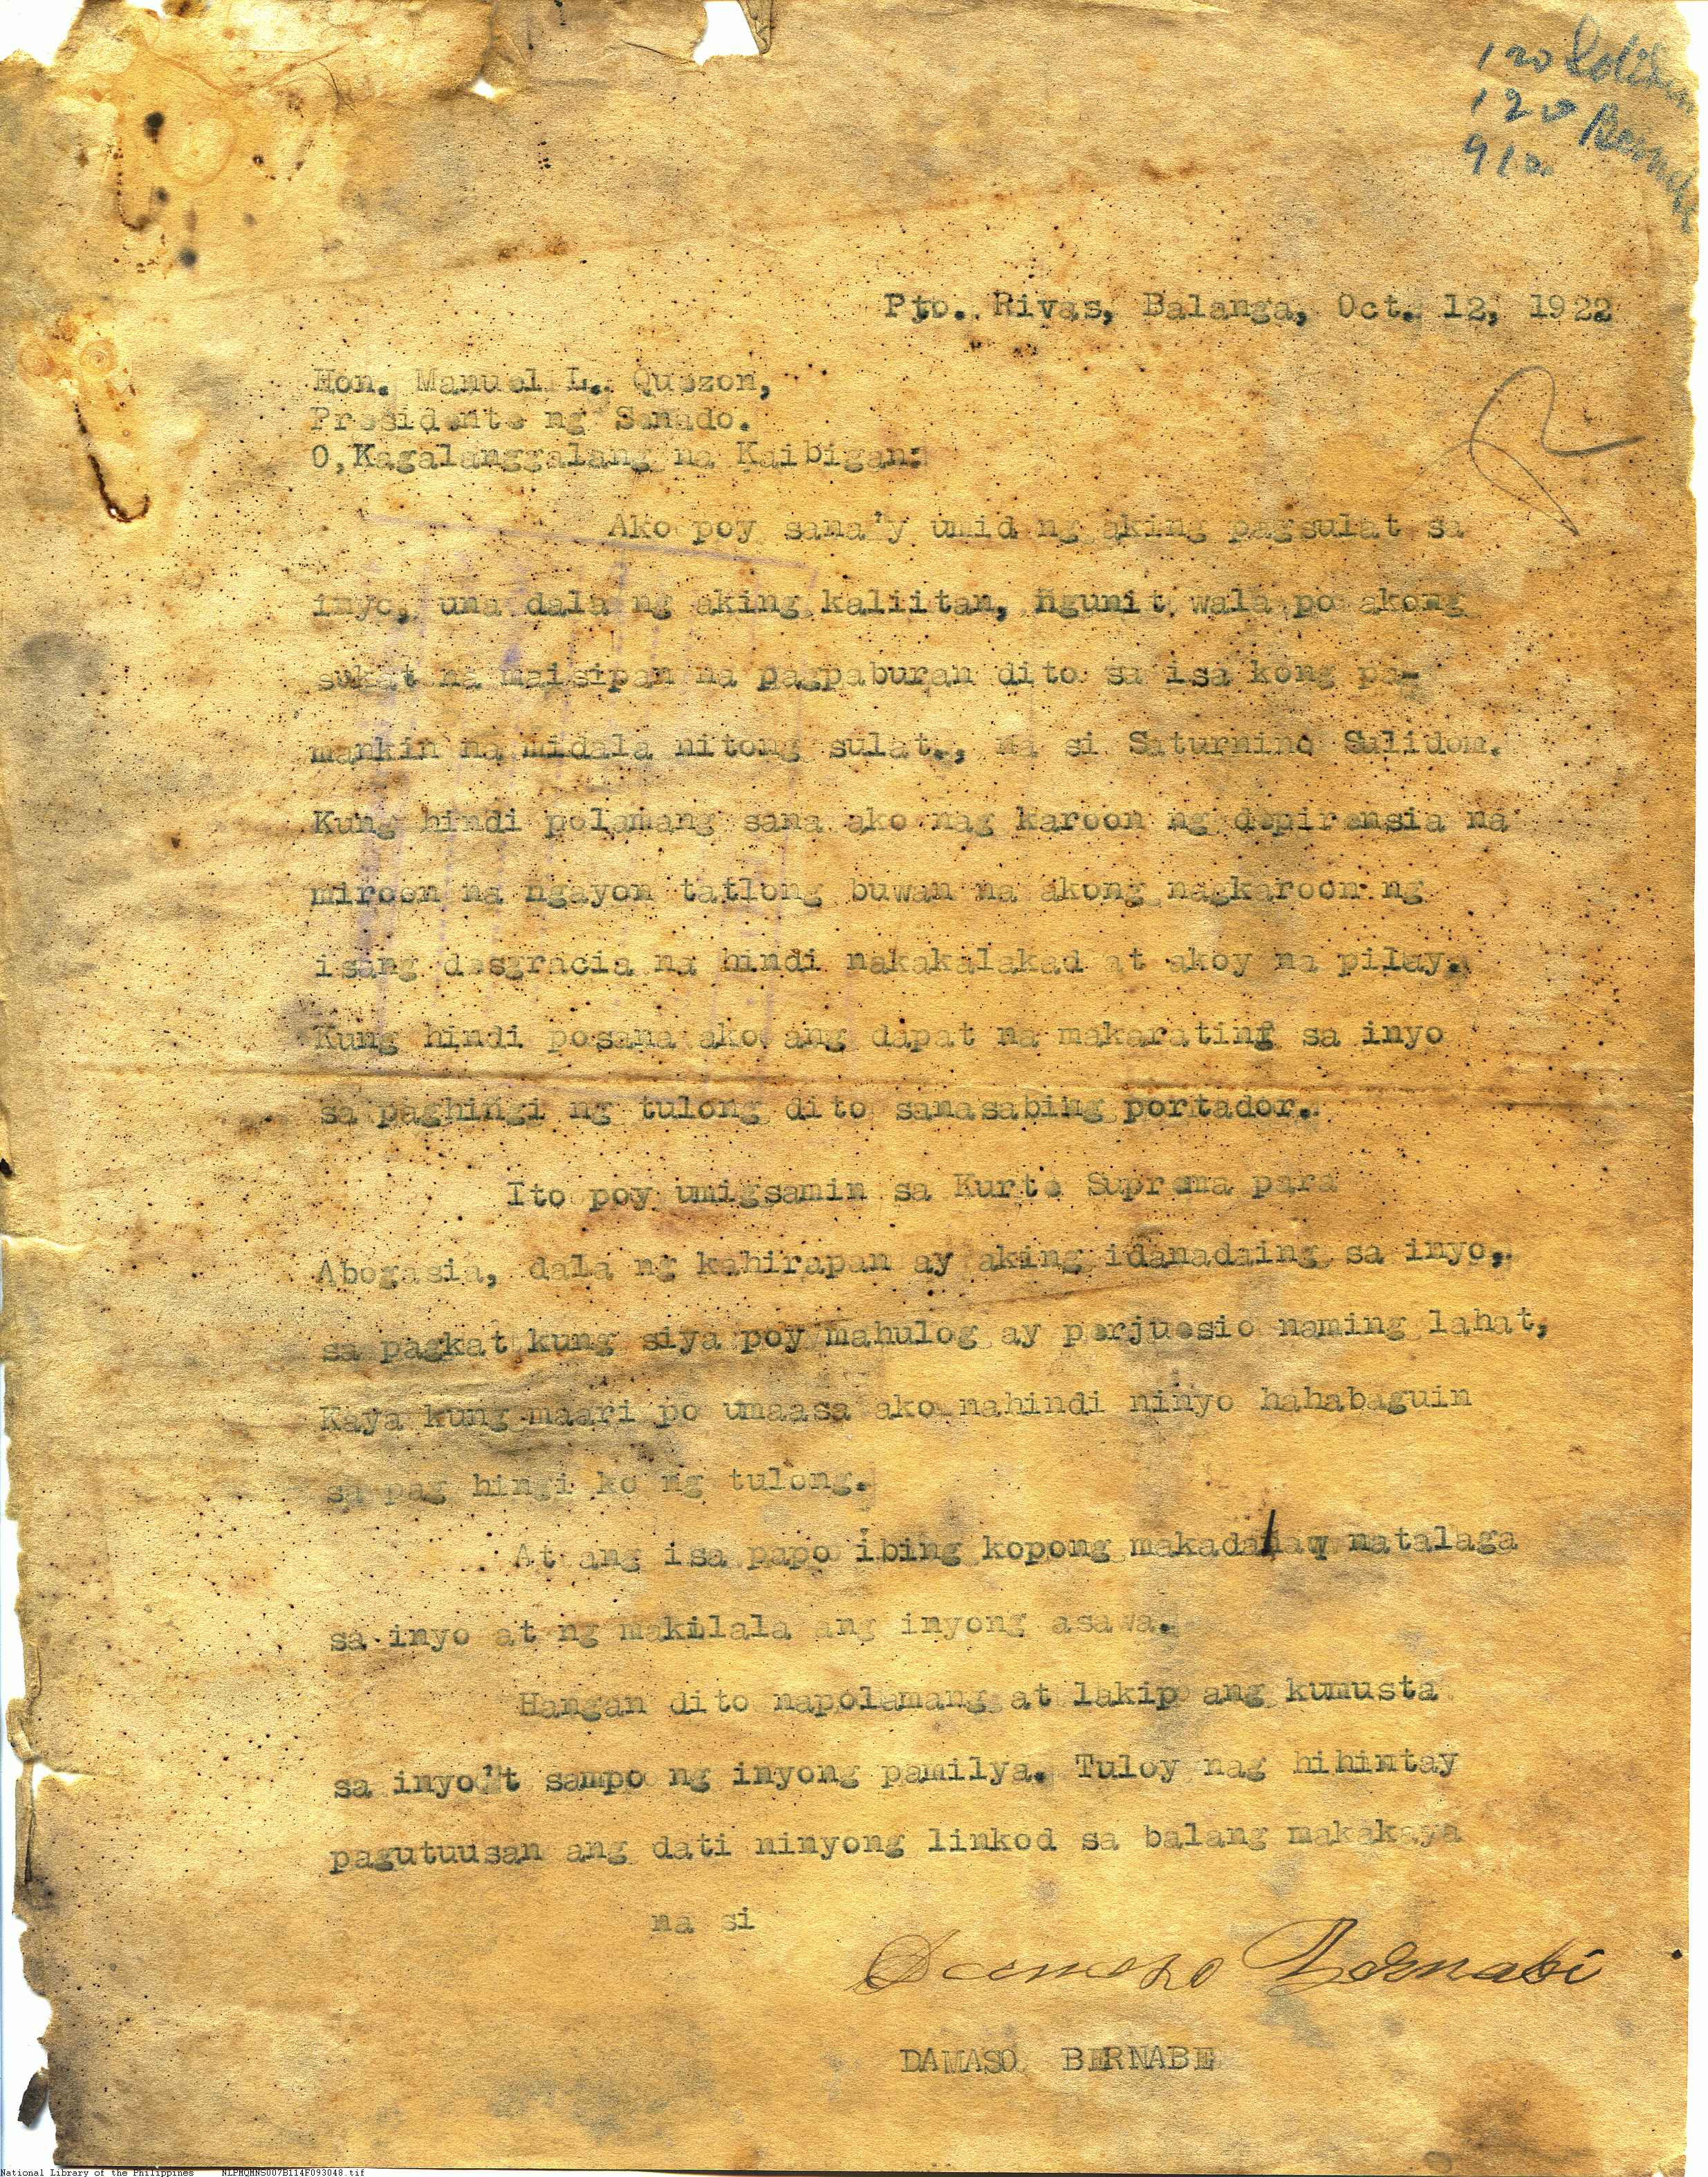 120
120
912
Pto. Rivas, Balanga, Oct. 12, 1922
Hon. Manuel L. Quezon,
Presidente ng Senado.
O,Kagalanggalang na Kaibigan:
Ako poy sana'y umid ng aking pagsulat sa
inyo, una dala ng aking kaliitan, ngunit wala po akong
sukat na maisipan na pagpaburan dito sa isa kong pa-
mankin na midala nitong sulat., na si Saturnino Sulidom.
Kung hindi polamang sana ako nag karoon ng depirensia na
miroon na ngayon tatlong buwan na akong nagkaroon ng
isang desgracia na hindi nakakalakad at akoy na pilay.
Kung hindi posana ako ang dapat na makarating sa inyo
sa paghingi ng tulong dito sanasabing portador.
Ito poy umigsamin sa Kurte Suprema para
Abogasia, dala ng kahirapan ay aking idanadaing sa inyo,
sa pagkat kung siya poy mahulog ay perjuesio naming lahat,
Kaya kung maari po umaasa ako nahindi ninyo hahabaguin
sa pag hingi ko ng tulong.
At ang isa papo ibing kopong natalaga
sa inyo at ng makilala ang inyong asawa.
Hangan dito napolamang at lakip ang kumusta
sa inyo't sampo ng inyong pamilya. Tuloy nag hihintay
pagutuusan ang dati ninyong linkod sa balang makakaya
na si
Damaso Bernabe
DAMASO BERNABE
National Library of the Philippines NLPMQMNS007B114F093048.tif